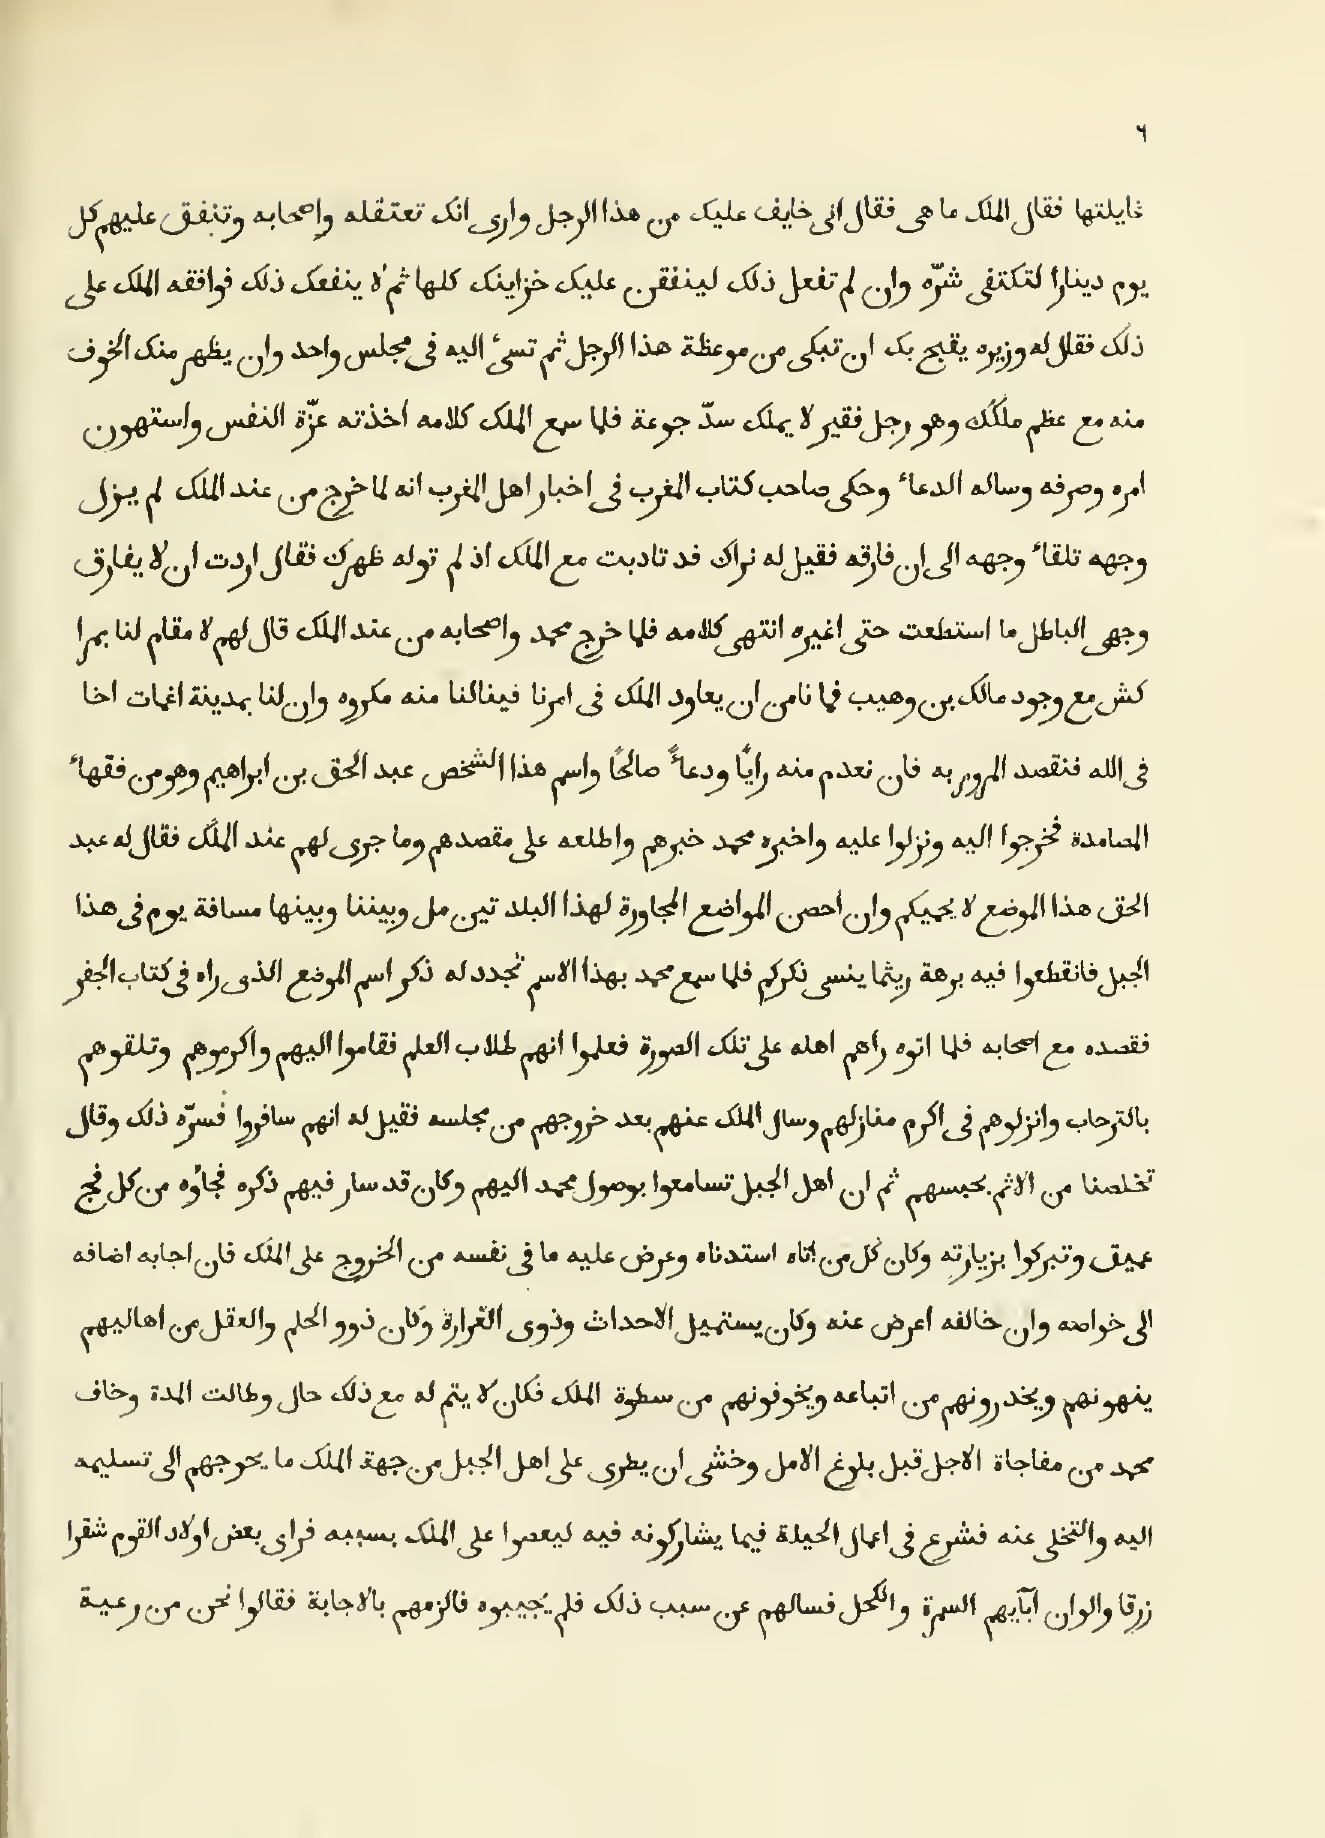 ٦
غايلتها فقال الملك ما هى فقال انى خايف عليك من هذا الرجل وارى انك تعتقله واصحابه وتنفق عليهم كل
يوم دينارا لتكتفى شرّه وان لم تفعل ذلك لينفقن عليك خزاينك كلها ثم لا ينفعك ذلك فوافقه الملك على
ذلك فقال له وزيره يقبح بك ان تبكى من موعظة هذا الرجل ثم تسىء اليه فى مجلس واحد وان يظهر منك الخوف
منه مع عظم ملكك وهو رجل فقير لا يملك سدّ جوعة فلما سمع الملك كلامه اخذته عزّة النفس واستهون
امره وصرفه وساله الدعاء وحكى صاحب كتاب المغرب فى اخبار اهل المغرب انه لما خرج من عند الملك لم يزل
وجهه تلقاء وجهه الى ان فارقه فقيل له نراك قد تادبت مع الملك اذ لم توله ظهرك فقال اردت ان لا يفارق
وجهى الباطل ما استطعت حتى اغيره انتهى كلامه فلما خرج محمد واصحابه من عند الملك قال لهم لا مقام لنا بمرا
كش مع وجود مالك بن وهيب فما نامن ان يعاود الملك فى امرنا فينالنا منه مكروه وان لنا بمدينة اغمات اخا
فى الله فنقصد المرور به فان نعدم منه رايًا ودعاءً صالحًا واسم هذا الشخص عبد الحق بن ابراهيم وهو من فقهاء
المصامدة فخرجوا اليه ونزلوا عليه واخبره محمد خبرهم واطلعه على مقصدهم وما جرى لهم عند الملك فقال له عبد
الحق هذا الموضع لا يحميكم وان احصن المواضع المجاورة لهذا البلد تين مل وبيننا وبينها مسافة يوم فى هذا
الجبل فانقطعوا فيه برهة ريثما ينسى ذكركم فلما سمع محمد بهذا الاسم تجدد له ذكر اسم الموضع الذى راه فى كتاب الجفر
فقصده مع اصحابه فلما اتوه راهم اهله على تلك الصورة فعلموا انهم طلاب العلم فقاموا اليهم واكرموهم وتلقوهم
بالترحاب وانزلوهم فى اكرم منازلهم وسال الملك عنهم بعد خروجهم من مجلسه فقيل له انهم سافروا فسرّه ذلك وقال
تخلصنا من الاثم بحبسهم ثم ان اهل الجبل تسامعوا بوصول محمد اليهم وكان قد سار فيهم ذكره فجاؤه من كل فج
عميق وتبركوا بزيارته وكان كل من اتاه استدناه وعرض عليه ما فى نفسه من الخروج على الملك فان اجابه اضافه
الى خواصه وان خالفه اعرض عنه وكان يستميل الاحداث وذوى الغرارة وكان ذوو الحلم والعقل من اهاليهم
ينهونهم ويحذرونهم من اتباعه ويخوفونهم من سطوة الملك فكان لا يتم له مع ذلك حال وطالت المدة وخاف
محمد من مفاجاة الاجل قبل بلوغ الامل وخشى ان يطرى على اهل الجبل من جهة الملك ما يحوجهم الى تسليمه
اليه والتخلى عنه فشرع فى اعمال الحيلة فيما يشاركونه فيه ليعصوا على الملك بسببه فراى بعض اولاد القوم شقرا
زرقا والوان آبآيهم السمرة والكحل فسالهم عن سبب ذلك فلم يجيبوه فالزمهم بالاجابة فقالوا نحن من رعية